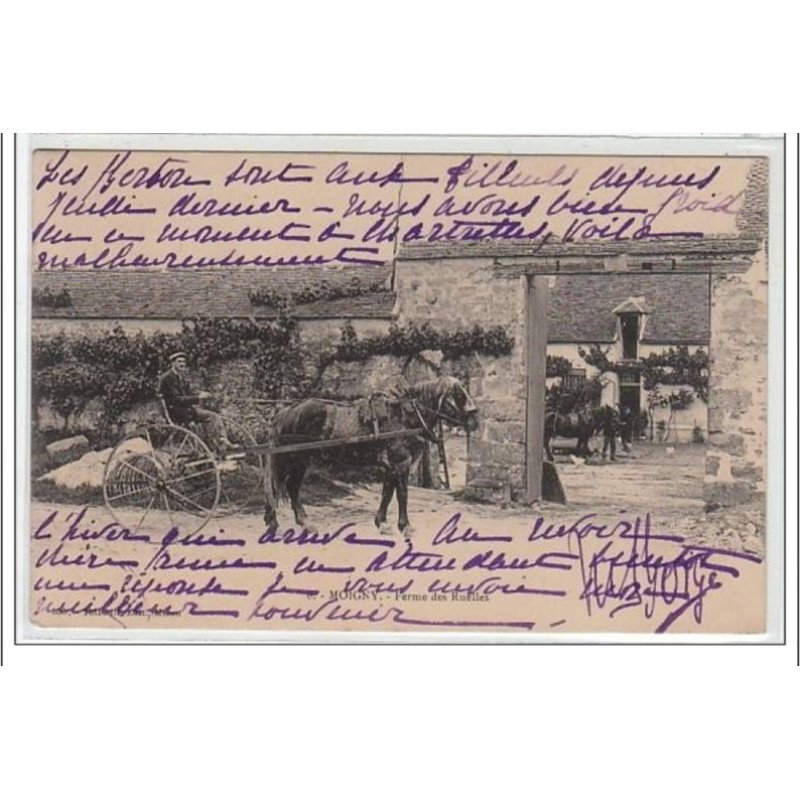 Les Berton sont aux Tilleuls depuis
jeudi dernier – nous avons bien froid
en ce moment à Chartrettes, Voilà
malheureusement
l'hiver qui arrive. Au revoir
chère en attendant
une réponse je vous envoie
meilleur souvenir
6. - MOIGNY. - Ferme des Ruelles